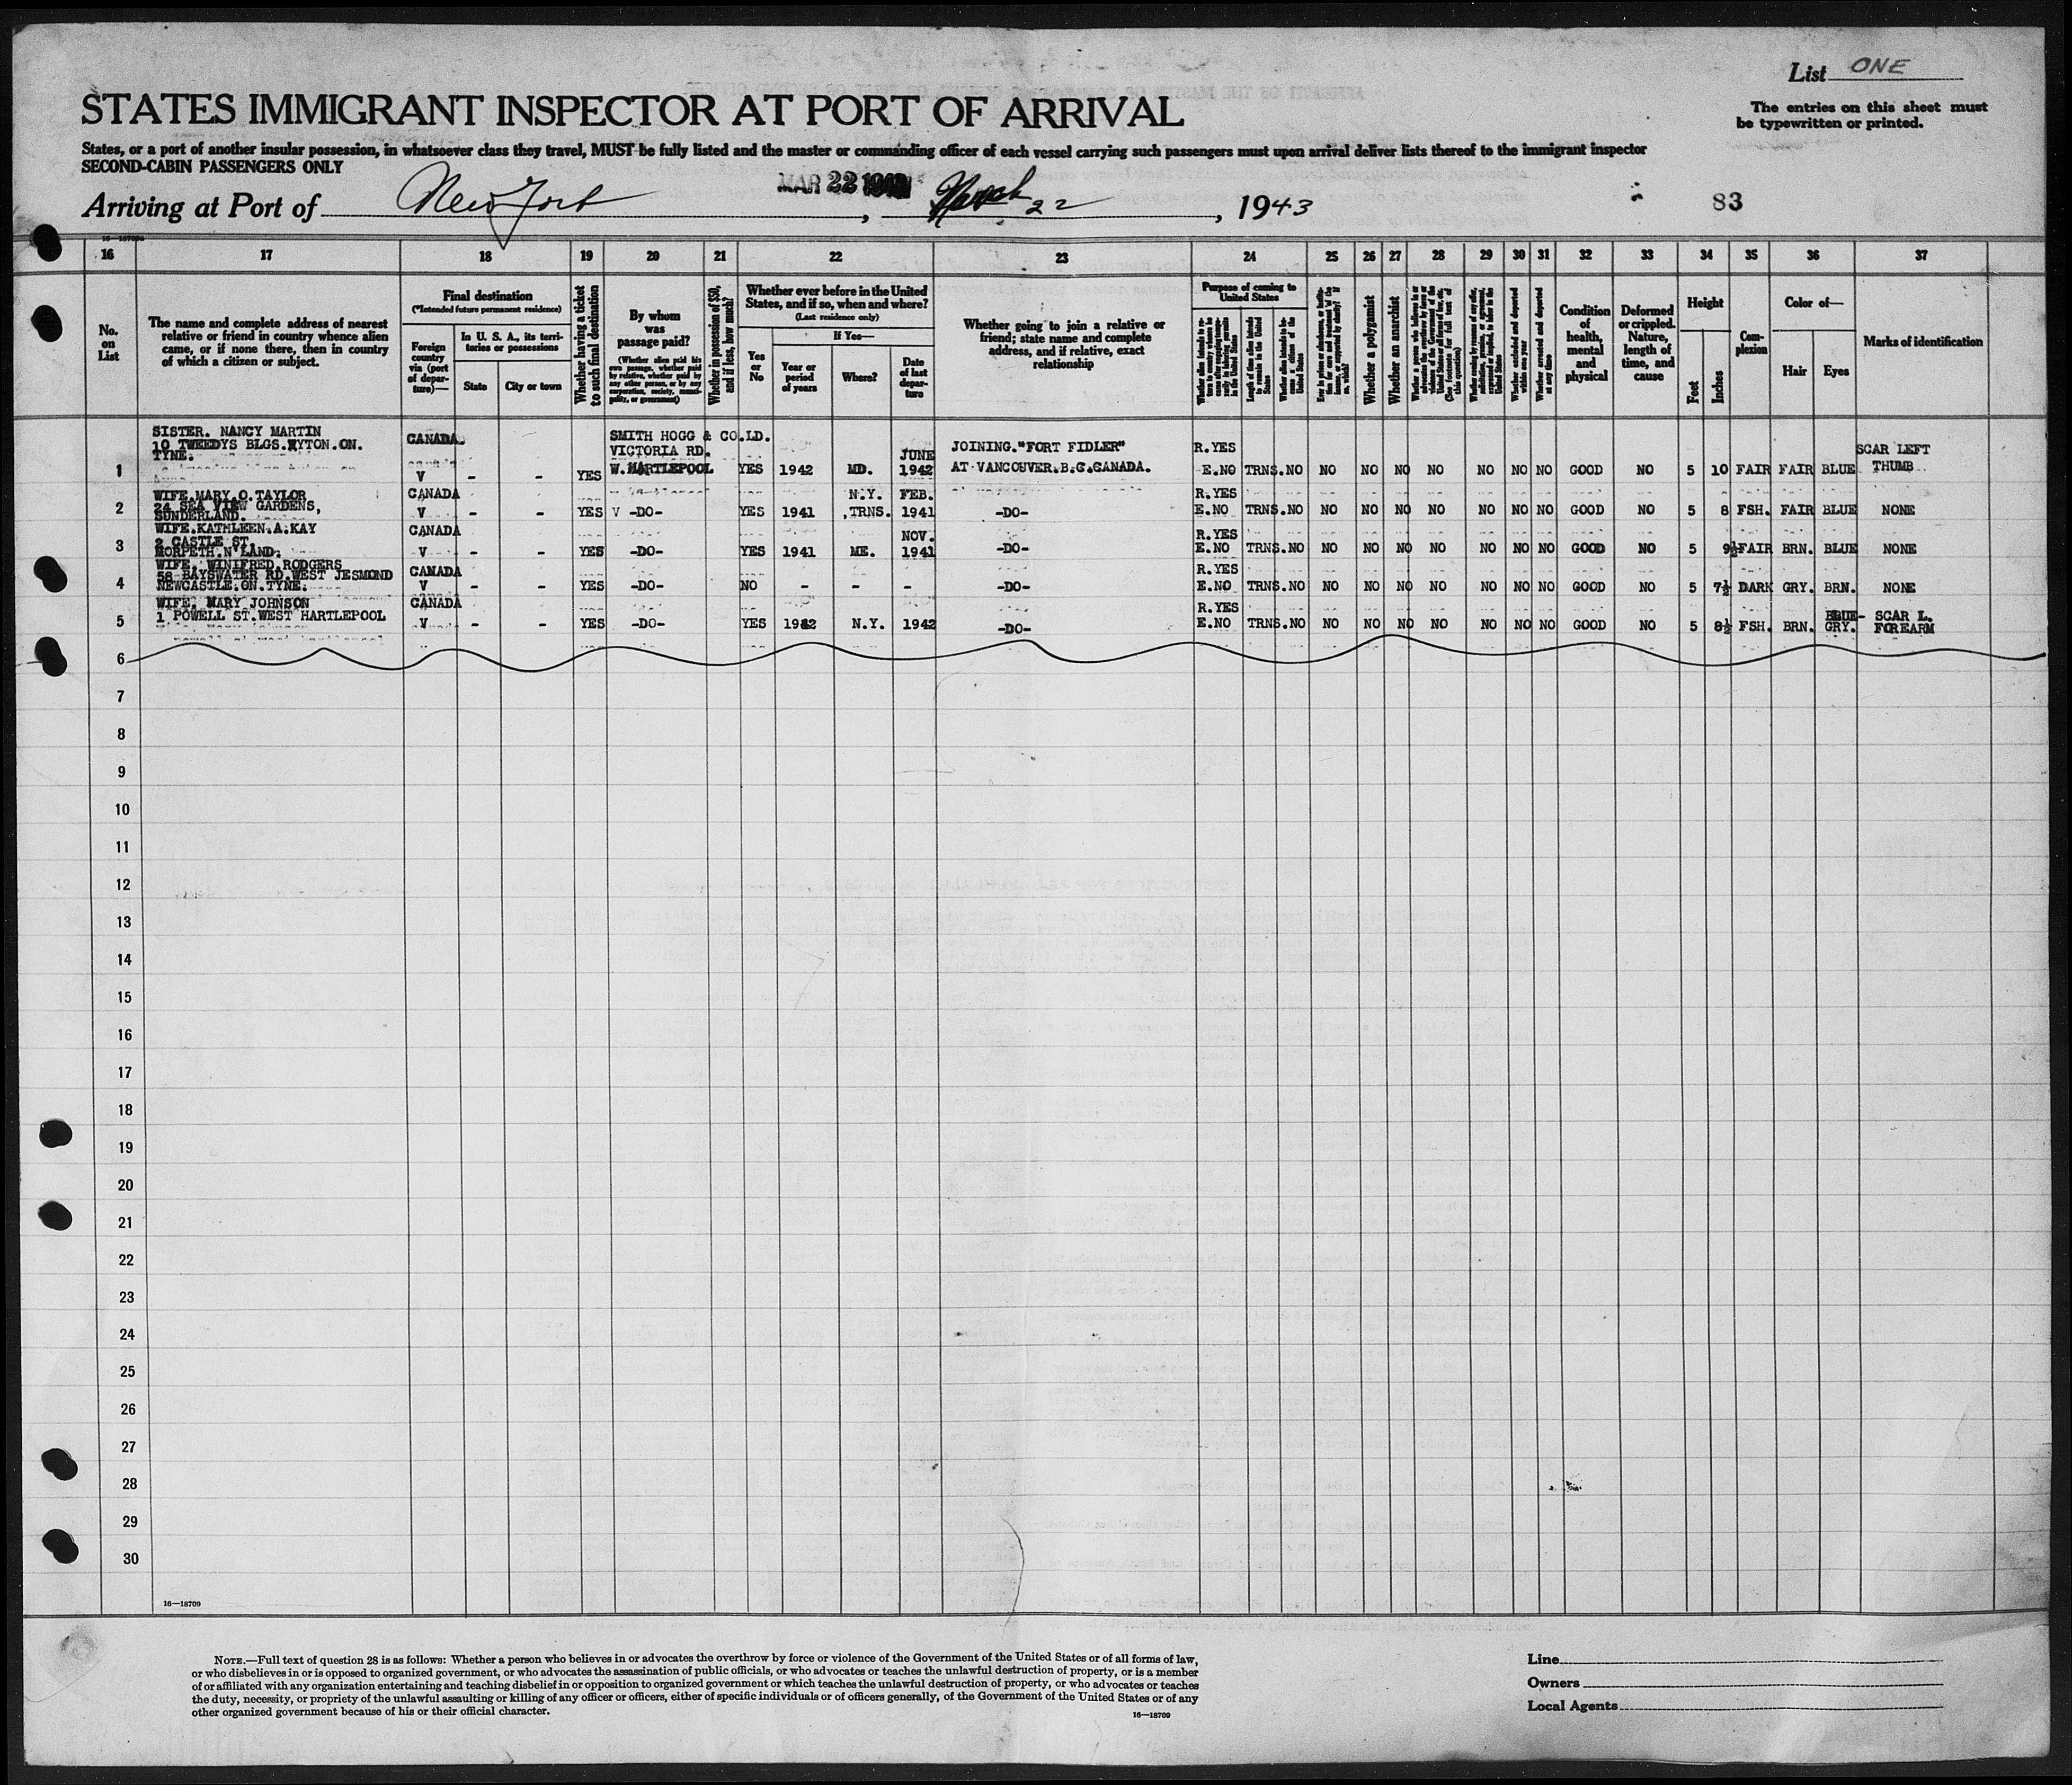 List ONE
STATES IMMIGRANT INSPECTOR AT PORT OF ARRIVAL
The entries on this sheet must
be typewritten or printed.
States, or a port of another insular possession, in whatsoever class they travel, MUST be fully listed and the master or commanding officer of each vessel carrying such passengers must upon arrival deliver lists thereof to the immigrant inspector
SECOND-CABIN PASSENGERS ONLY
Arriving at Port of New York, MAR 22 March 22, 1943 83
16 17 18 19 20 21 22 23 24 25 26 27 28 29 30 31 32 33 34 35 36 37
No.
on
List
The name and complete address of nearest
relative or friend in country whence alien
came, or if none there, then in country
of which a citizen or subject.
Final destination
(*Intended future permanent residence)
Foreign
country
via (port
of depar-
ture)—
In U. S. A., its terri-
tories or possessions
State
City or town
Whether having a ticket
to such final destination
By whom
was
passage paid?
(Whether alien paid his
own passage, whether paid
by relative, whether paid by
any other person, or by any
corporation, society, munici-
pality, or government)
Whether in possession of $50,
and if less, how much?
Whether ever before in the United
States, and if so, when and where?
(Last residence only)
Yes
or
No
If Yes—
Year or
period
of years
Where?
Date
of last
depar-
ture
Whether going to join a relative or
friend; state name and complete
address, and if relative, exact
relationship
Purpose of coming to
United States
Whether a polygamist
Whether an anarchist
Whether excluded and deported
within one year
Whether arrested and deported
at any time
Condition
of
health,
mental
and
physical
Deformed
or crippled.
Nature,
length of
time, and
cause
Height
Feet
Inches
Com-
plexion
Color of—
Hair
Eyes
Marks of identification
SISTER. NANCY MARTIN SMITH HOGG & CO.LD.
10 TWEEDYS BLGS.RYTON.ON. CANADA. VICTORIA RD. JUNE JOINING."FORT FIDLER" R.YES SCAR LEFT
TYNE.
1 V - - YES W.HARTLEPOOL YES 1942 MD. 1942 AT VANCOUVER.B.C.CANADA. E.NO TRNS.NO NO NO NO NO NO NO NO GOOD NO 5 10 FAIR FAIR BLUE THUMB
WIFE.MARY.O.TAYLOR CANADA N.Y. FEB. R.YES
24 SEA VIEW GARDENS,
2 SUNDERLAND. V - - YES V -DO- YES 1941 ,TRNS. 1941 -DO- E.NO TRNS.NO NO NO NO NO NO NO NO GOOD NO 5 8 FSH. FAIR BLUE NONE
WIFE.KATHLEEN.A.KAY CANADA NOV. R.YES
2 CASTLE ST.
3 MORPETH.N'LAND. V - - YES -DO- YES 1941 ME. 1941 -DO- E.NO TRNS.NO NO NO NO NO NO NO NO GOOD NO 5 9½ FAIR BRN. BLUE NONE
WIFE. WINIFRED.RODGERS R.YES
58 BAYSWATER RD.WEST JESMOND CANADA
4 NEWCASTLE.ON.TYNE. V - - YES -DO- NO - - - -DO- E.NO TRNS.NO NO NO NO NO NO NO NO GOOD NO 5 7½ DARK GRY. BRN. NONE
WIFE. MARY JOHNSON CANADA R.YES
1 POWELL ST.WEST HARTLEPOOL BLUE- SCAR L.
5 V - - YES -DO- YES 1942 N.Y. 1942 -DO- E.NO TRNS.NO NO NO NO NO NO NO NO GOOD NO 5 8½ FSH. BRN. GRY. FOREARM
6
7
8
9
10
11
12
13
14
15
16
17
18
19
20
21
22
23
24
25
26
27
28
29
30
16—18709
NOTE.—Full text of question 28 is as follows: Whether a person who believes in or advocates the overthrow by force or violence of the Government of the United States or of all forms of law,
or who disbelieves in or is opposed to organized government, or who advocates the assassination of public officials, or who advocates or teaches the unlawful destruction of property, or is a member
of or affiliated with any organization entertaining and teaching disbelief in or opposition to organized government or which teaches the unlawful destruction of property, or who advocates or teaches
the duty, necessity, or propriety of the unlawful assaulting or killing of any officer or officers, either of specific individuals or of officers generally, of the Government of the United States or of any
other organized government because of his or their official character.
16—18709
Line
Owners
Local Agents